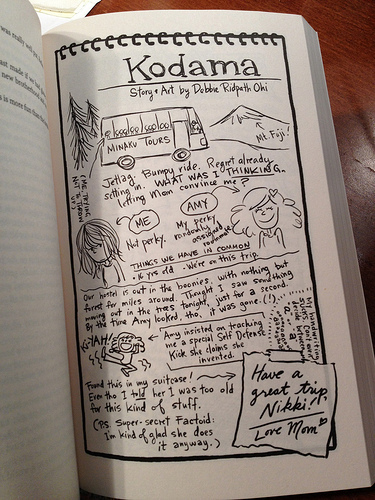 Kodama
Story & Art by Debbie Ridpath Ohi
MINAKU TOURS
Mt. Fuji!
Jetlag. Bumpy ride. Regret already
setting in. WHAT WAS I THINKING..
letting Mom convince me?
(ME, TRYING
NOT TO THROW
UP)
ME
Not perky.
AMY
My perky
randomly
assigned
roommate
THINGS WE HAVE IN COMMON
• 16 yrs old • We're on this trip.
Our hostel is out in the boonies, with nothing but
forest for miles around. Thought I saw something
moving out in the trees tonight, just for a second.
By the time Amy looked, tho, it was gone. (!)
KI-YAH!
Amy insisted on teaching
me a special Self Defense
Kick she claims she
invented.
Found this in my suitcase!
Even tho I told her I was too old
for this kind of stuff.
(PS. Super-secret Factoid:
I'm kind of glad she does
it anyway.)
Have a
great trip,
Nikki!
Love Mom